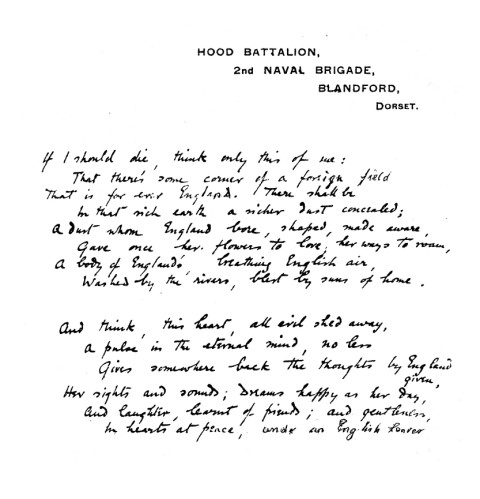 HOOD BATTALION,
2nd NAVAL BRIGADE,
BLANDFORD,
DORSET.
If I should die, think only this of me:
That there's some corner of a foreign field
That is for ever England. There shall be
In that rich earth a richer dust concealed;
A dust whom England bore, shaped, made aware,
Gave once her flowers to love, her ways to roam,
A body of England's, breathing English air,
Washed by the rivers, blest by suns of home.
And think, this heart, all evil shed away,
A pulse in the eternal mind, no less
Gives somewhere back the thoughts by England
given,
Her sights and sounds; Dreams happy as her Day,
And laughter, learnt of friends; and gentleness,
In hearts at peace, under an English heaven